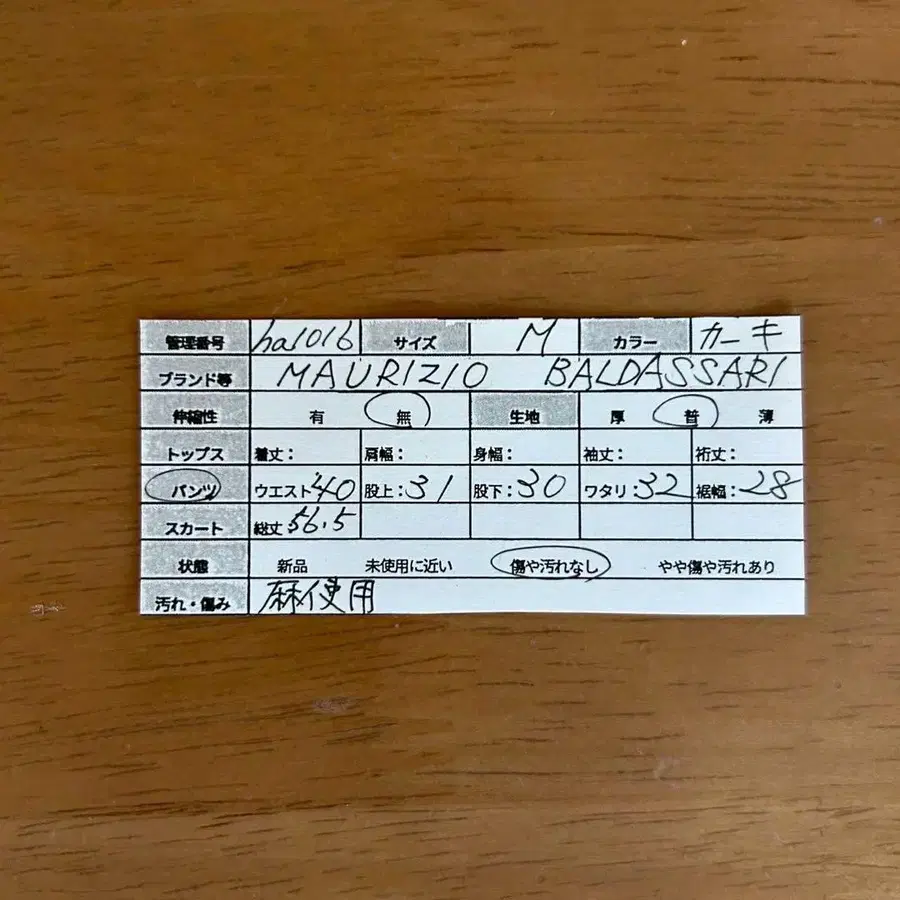 管理番号 ha1016 サイズ M カラー カーキ
ブランド等 MAURIZIO BALDASSARI
伸縮性 有 無 生地 厚 普 薄
トップス 着丈: 肩幅: 身幅: 袖丈: 裄丈:
パンツ ウエスト40 股上:31 股下:30 ワタリ:32 裾幅:28
スカート 総丈56.5
状態 新品 未使用に近い 傷や汚れなし やや傷や汚れあり
汚れ・傷み 麻使用